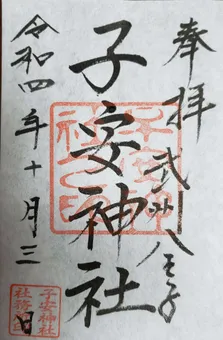 奉拝 武州八王子
子安神社
令和四年十月三日
子安神社
社務所印